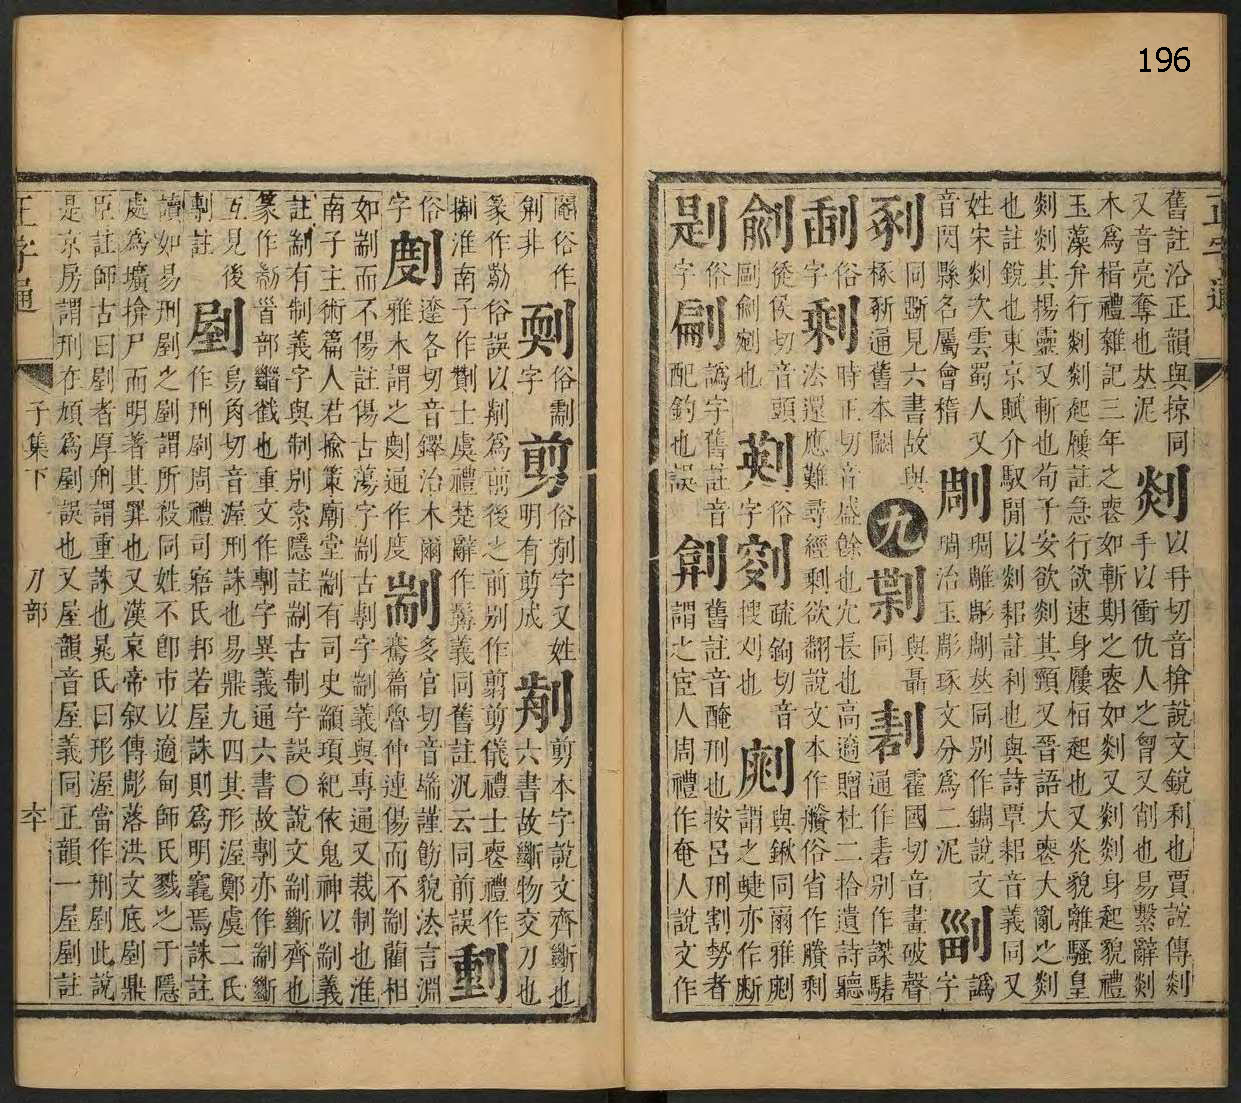 正字通
舊註沿正韻與掠同
又音亮奪也𠀤泥
剡
以冉切音掞說文銳利也賈誼傳剡
手以衝仇人之胷又削也易繫辭剡
木爲楫禮雜記三年之喪如斬期之喪如剡又剡剡身起貌禮
玉藻弁行剡剡起屨註急行欲速身屨恒起也又灮貌離騷皇
剡剡其揚靈又斬也荀子安欲剡其頸又晉語大喪大亂之剡
也註銳也東京賦介馭閒以剡耜註利也與詩覃耜音義同又
姓宋剡次雲蜀人又
音閃縣名屬會稽
琱雕彫𠀤同別作鐗說文
琱治玉彫琢文分爲二泥
譌
字
剢
同斲見六書故與
椓斵通舊本闕
九
與
同
剨
霍國切音畫破聲
通作砉別作謋騞
俗
字
剩
時正切音盛餘也冗長也高適贈杜二拾遺詩聽
法還應難尋經剩欲翻說文本作賸俗省作賸剩
徯侯切音頭
剾剜也
俗
字
疏鉤切音
搜刈也
與鍬同爾雅
謂之疀亦作
俗
字
譌字舊註音
配釣也誤
舊註音醃刑也按呂刑割勢者
謂之宦人周禮作奄人說文作
閹俗作
非
俗
字
剪
俗字又姓
明有剪成
剪本字說文齊斷也
六書故斷物交刀也
篆作俗誤以爲前後之前别作翦剪儀禮士喪禮作
揃淮南子作士虞禮楚辭作鬋義同舊註汎云同前誤
俗
字
剫
達各切音鐸治木爾
雅木謂之剫通作度
剬
多官切音端謹飭貌法言淵
騫篇魯仲連傷而不剬藺相
如剬而不傷註傷古蕩字剬古剸字剬義與專通又裁制也淮
南子主術篇人君揄策廟堂剬有司史顓頊紀依鬼神以剬義
註剬有制義字與制别索隱註剬古制字誤○說文剬斷齊也
篆作首部截也重文作剸字異義通六書故剸亦作剬斷
互見後
剸註
剭
烏角切音渥刑誅也易鼎九四其形渥鄭虞二氏
作刑剭周禮司寤氏邦若屋誅則爲明竁焉誅註
讀如易刑剭之剭謂所殺同姓不卽市以適甸師氏戮之于隱
處爲壙揜尸而明著其罪也又漢哀帝叙傳彫落洪文底剭鼎
臣註師古曰剭者厚刑謂重誅也晁氏曰形渥當作刑剭此說
是京房謂刑在頄爲剭誤也又屋韻音屋義同正韻一屋剭註
正字通
子集下
刀部
卒
196